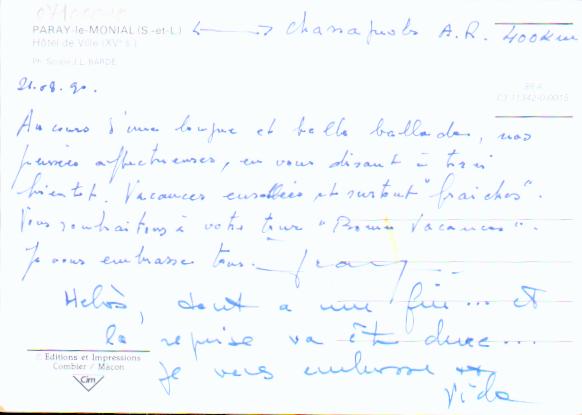 PARAY-le-MONIAL (S-et-L) ⟷ Chassagnole A.R. 400 km
Hôtel de Ville (XVe s.)
Ph.
21.08.90.
C3 11342-0-0015
Au cours d'une longue et belle ballade, nos
pensées affectueuses, en vous disant à très
bientôt. Vacances ensoleillées et surtout "fraîches".
Nous souhaitons à votre tour "Bonnes Vacances".
Je vous embrasse tous.
Helàs, tout a une fin ... et
la reprise va être dure...
je vous embrasse
Vida
Editions et Impressions
Combier / Macon
Cim